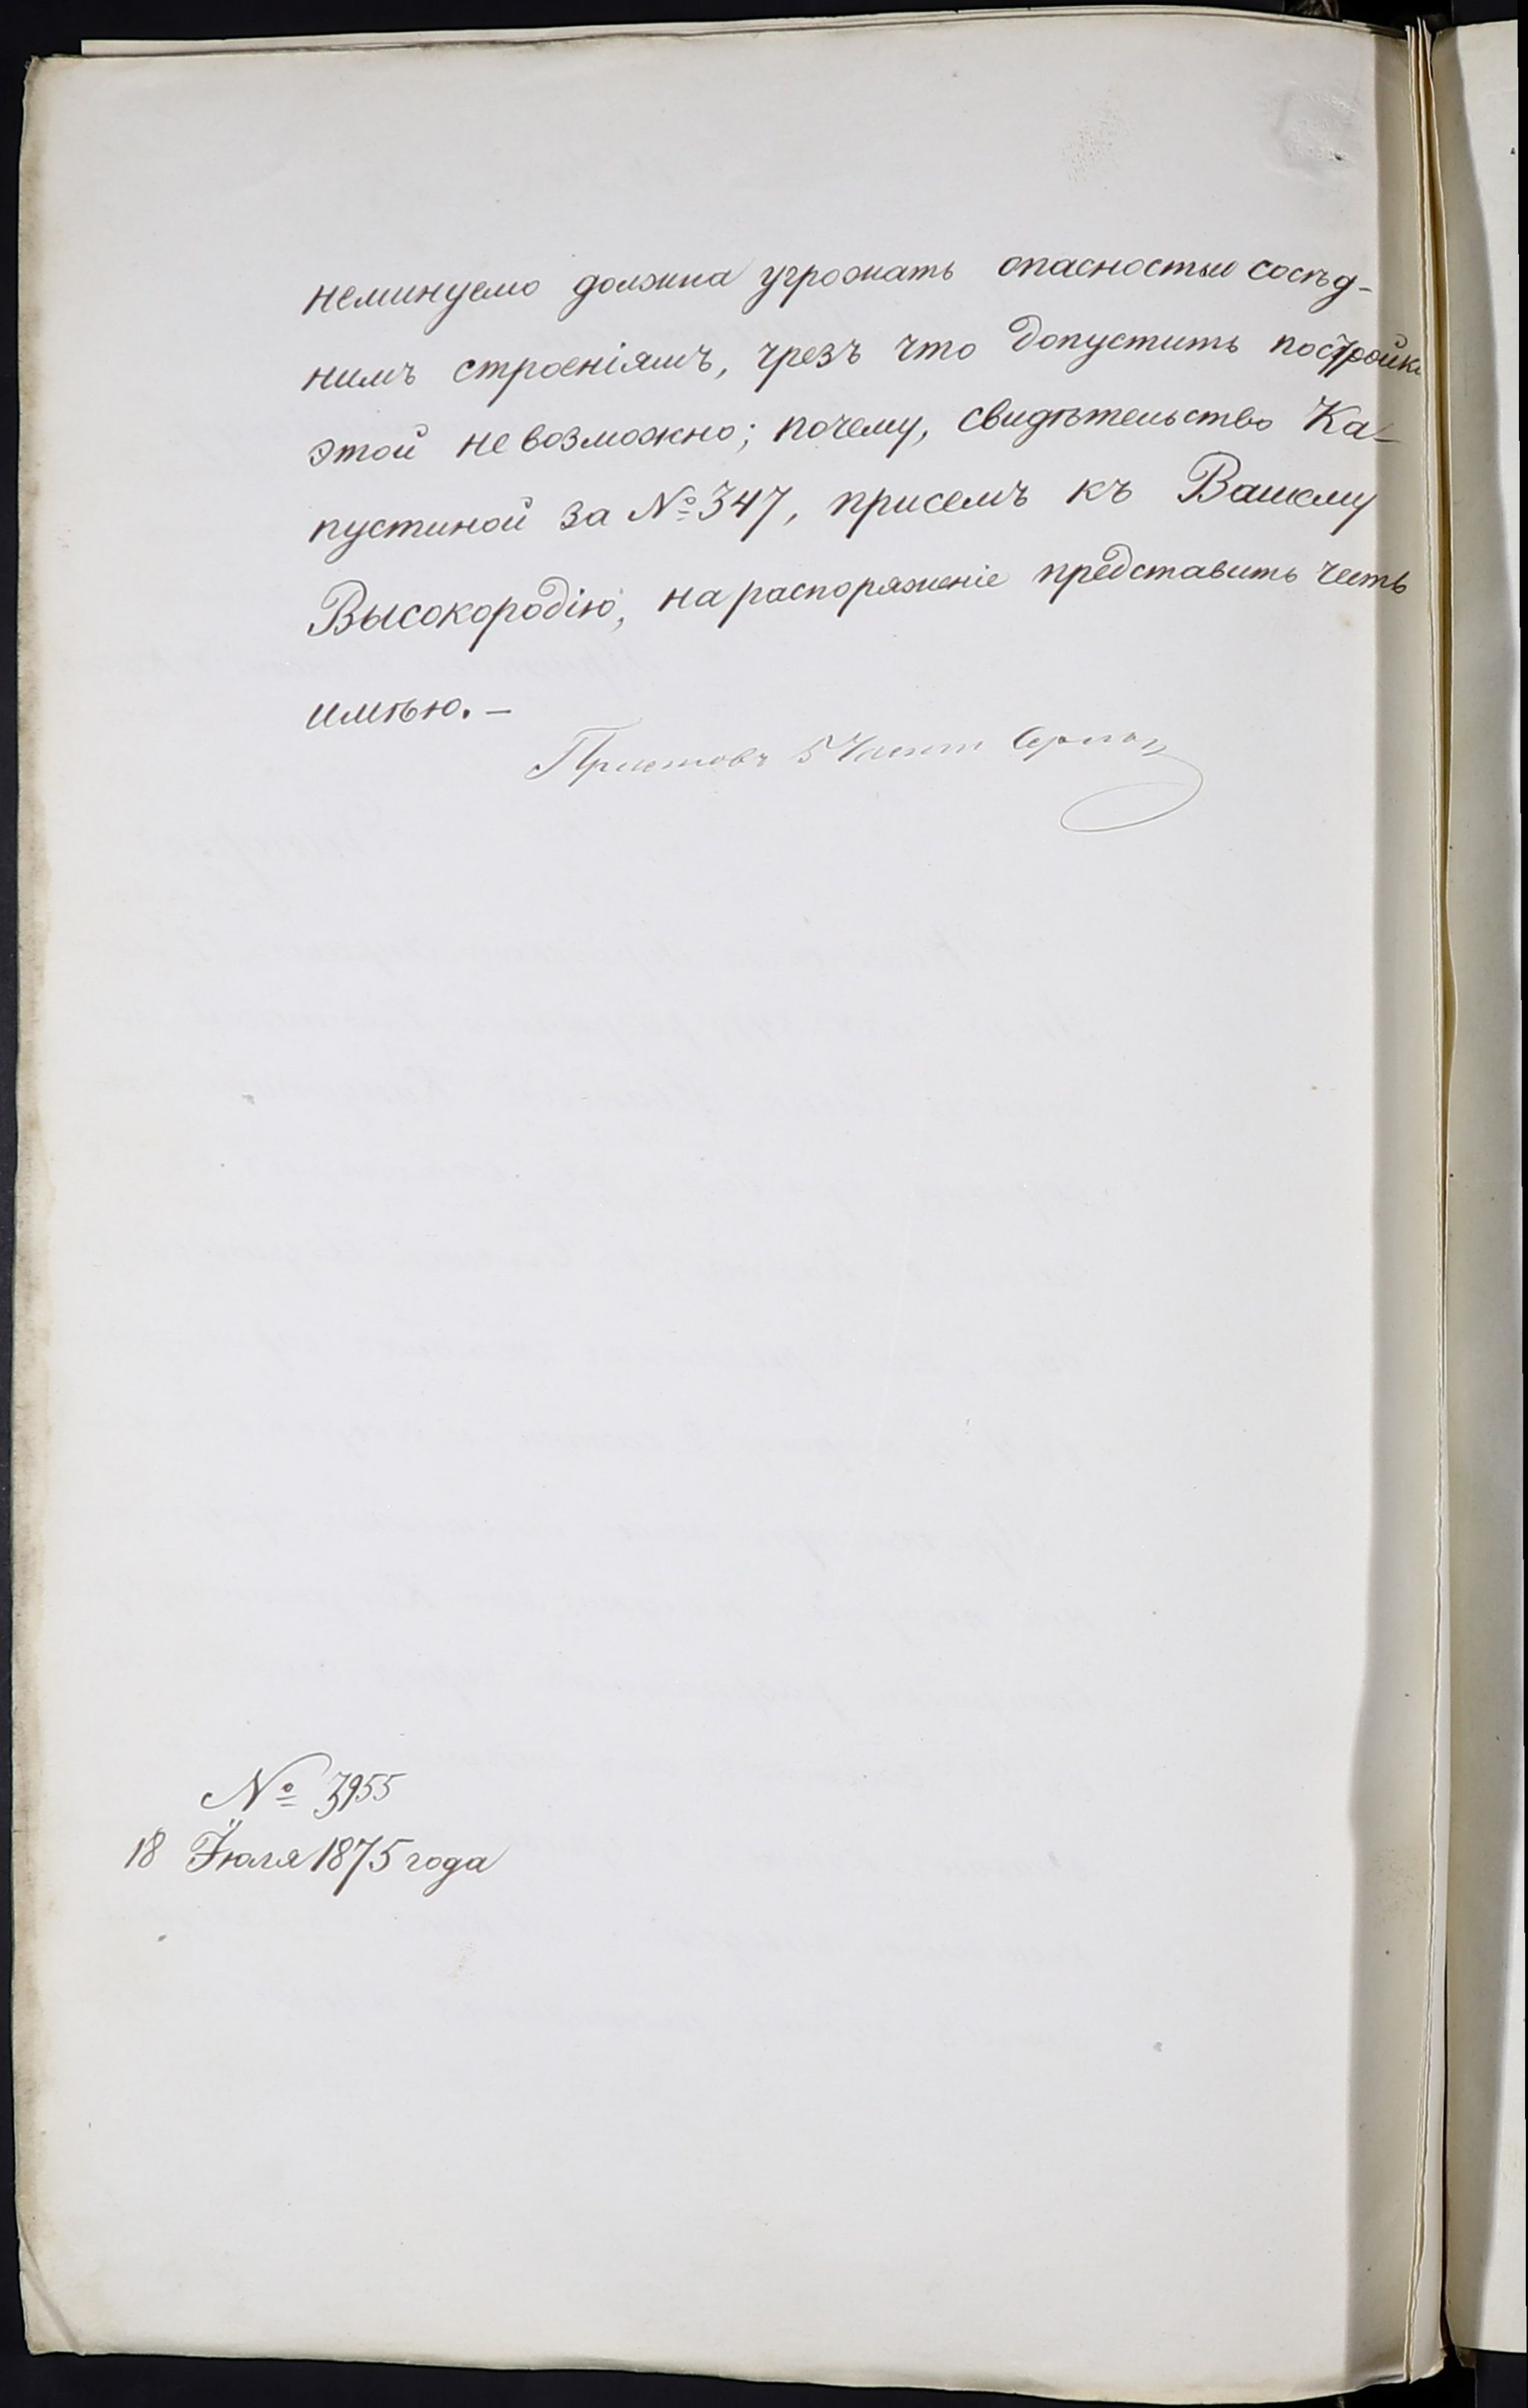 неминуемо должна угрожать опасностью сосѣд-
нимъ строеніямъ, чрезъ что допустить постройки
этой не возможно; почему, свидѣтельство Ка-
пустиной за № 347, присемъ къ Вашему
Высокородію, на распоряженіе представить честь
имѣю. —
Приставъ 5 Части
№ 3955
18 Іюля 1875 года